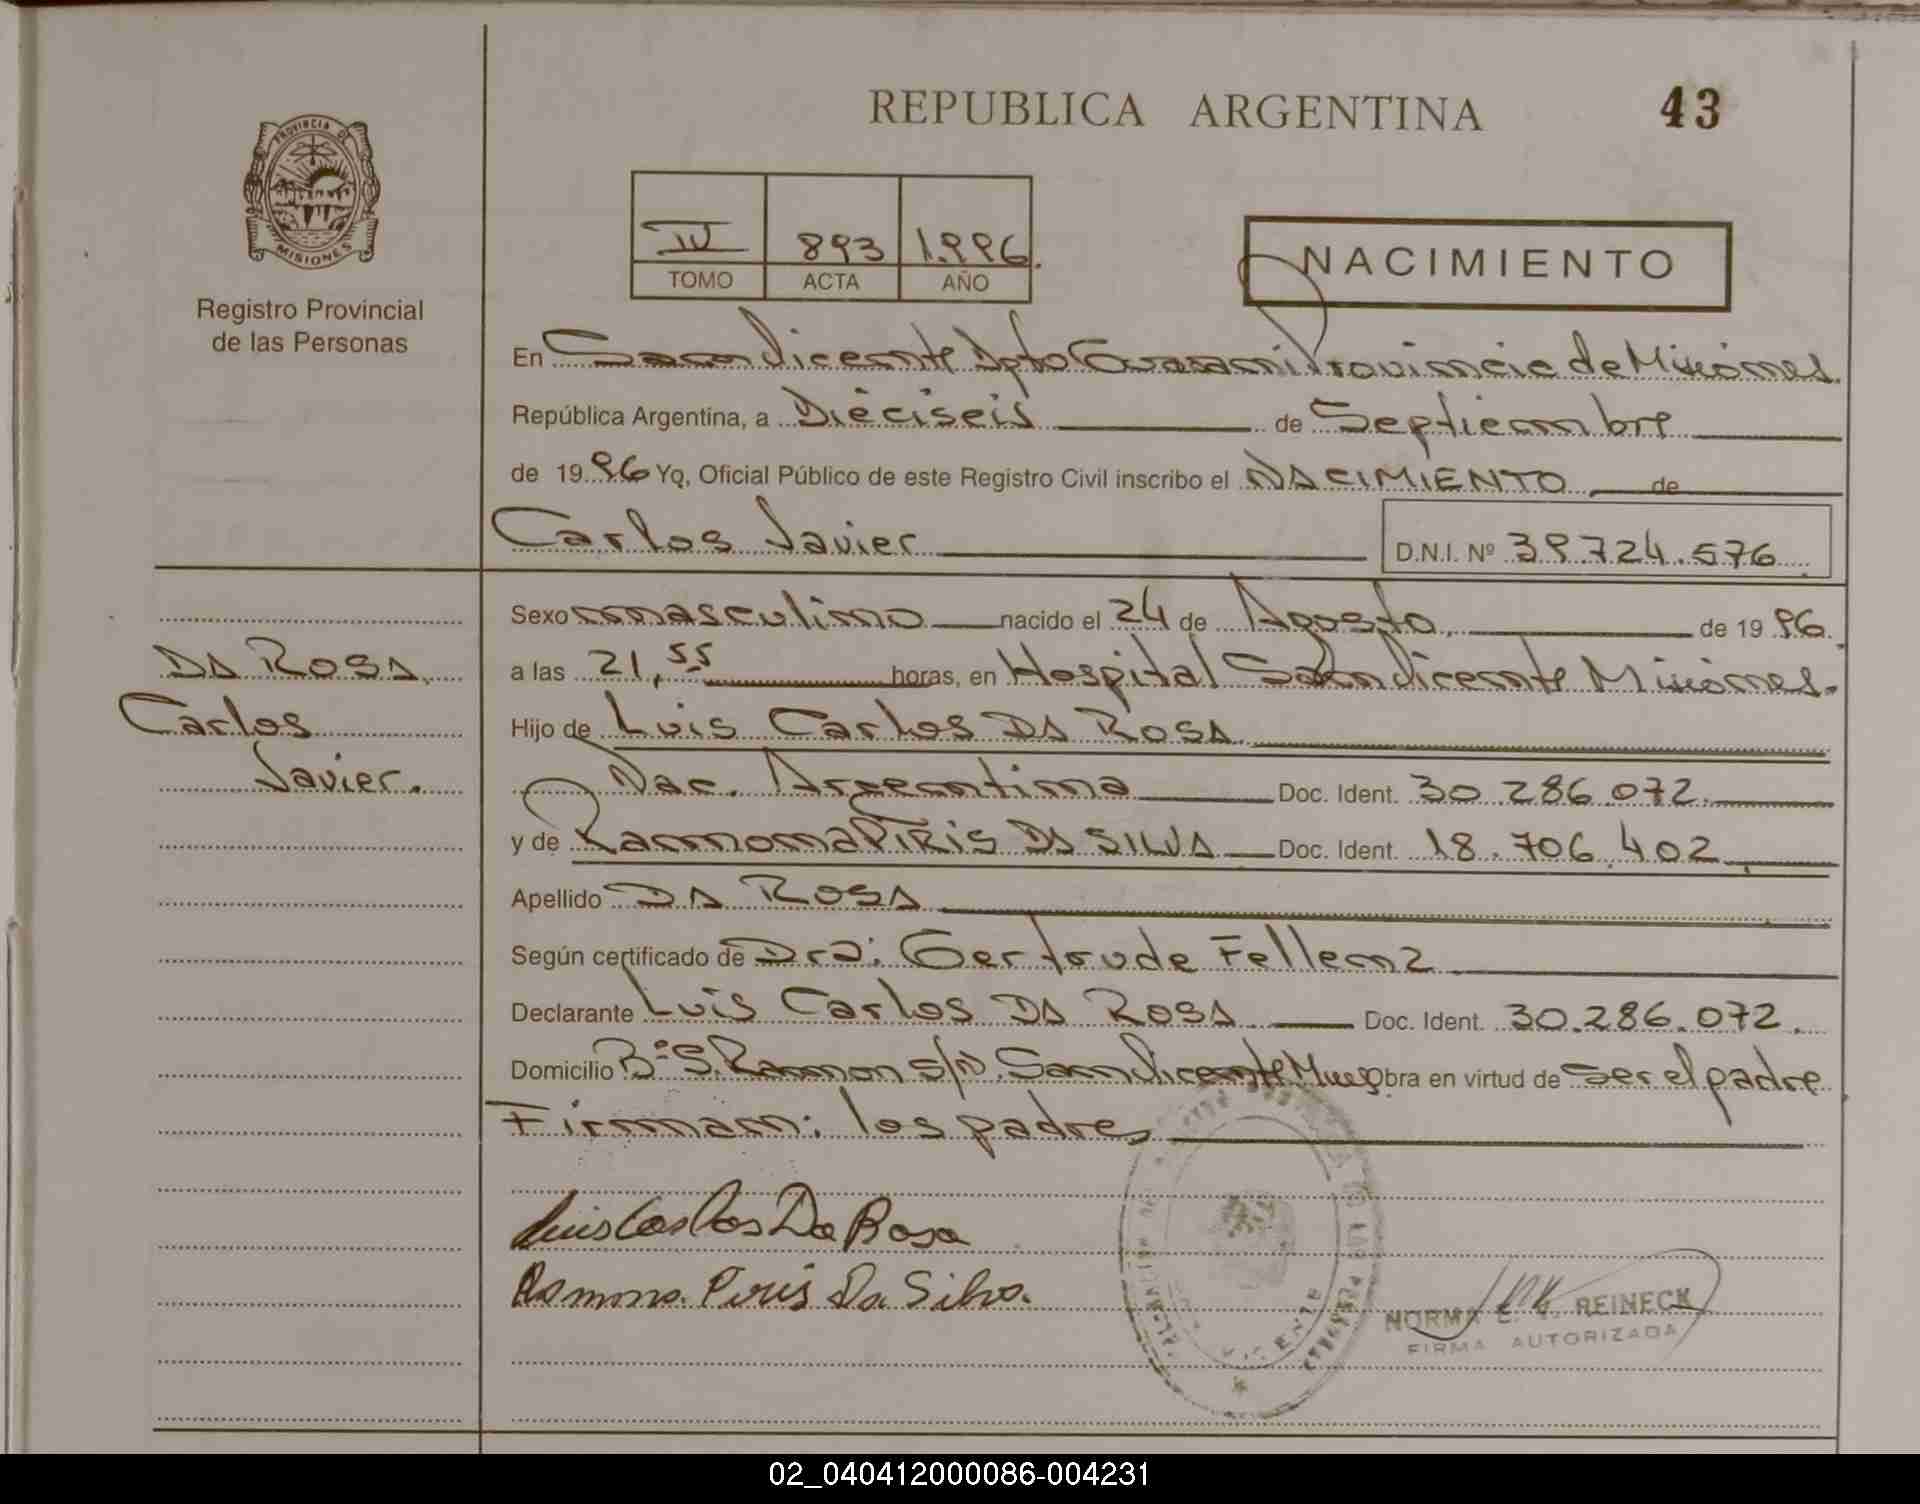 REPUBLICA ARGENTINA
43
PROVINCIA D
MISIONES
Registro Provincial
de las Personas
IV 893 1.996.
TOMO ACTA AÑO
NACIMIENTO
En San Vicente Dpto Guarani Provincia de Misiones.
República Argentina, a Dieciseis de Septiembre
de 19 96 Yo, Oficial Público de este Registro Civil inscribo el NACIMIENTO de
Carlos Javier D.N.I. Nº 39.724.576
Sexo masculino nacido el 24 de Agosto de 19 96.
DA ROSA
Carlos
Javier.
a las 21,55 horas, en Hospital San Vicente Misiones.
Hijo de Luis Carlos DA ROSA
Nac. Argentina Doc. Ident. 30 286.072
y de Ramona PIRIS DA SILVA Doc. Ident. 18.706.402
Apellido DA ROSA
Según certificado de Dra: Gertrude Fellenz
Declarante Luis Carlos DA ROSA Doc. Ident. 30.286.072.
Domicilio Bº S. Ramon S/N. San Vicente Mnes Obra en virtud de Ser el padre
Firman: los padres
Luis Carlos Da Rosa
Ramona Piris Da Silva.
VICENTE
NORMA REINECK
FIRMA AUTORIZADA
02_040412000086-004231